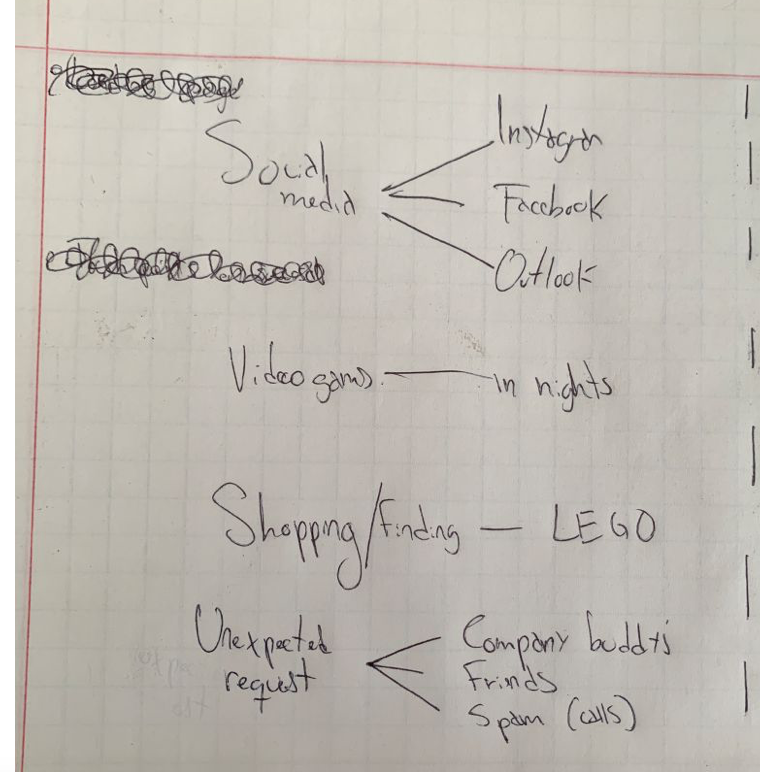 Social
media
Instagran
Facebook
Outlook
Video gams. — in nights
Shopping/finding — LEGO
Unexpected
request
Company buddys
Frinds
Spam (calls)